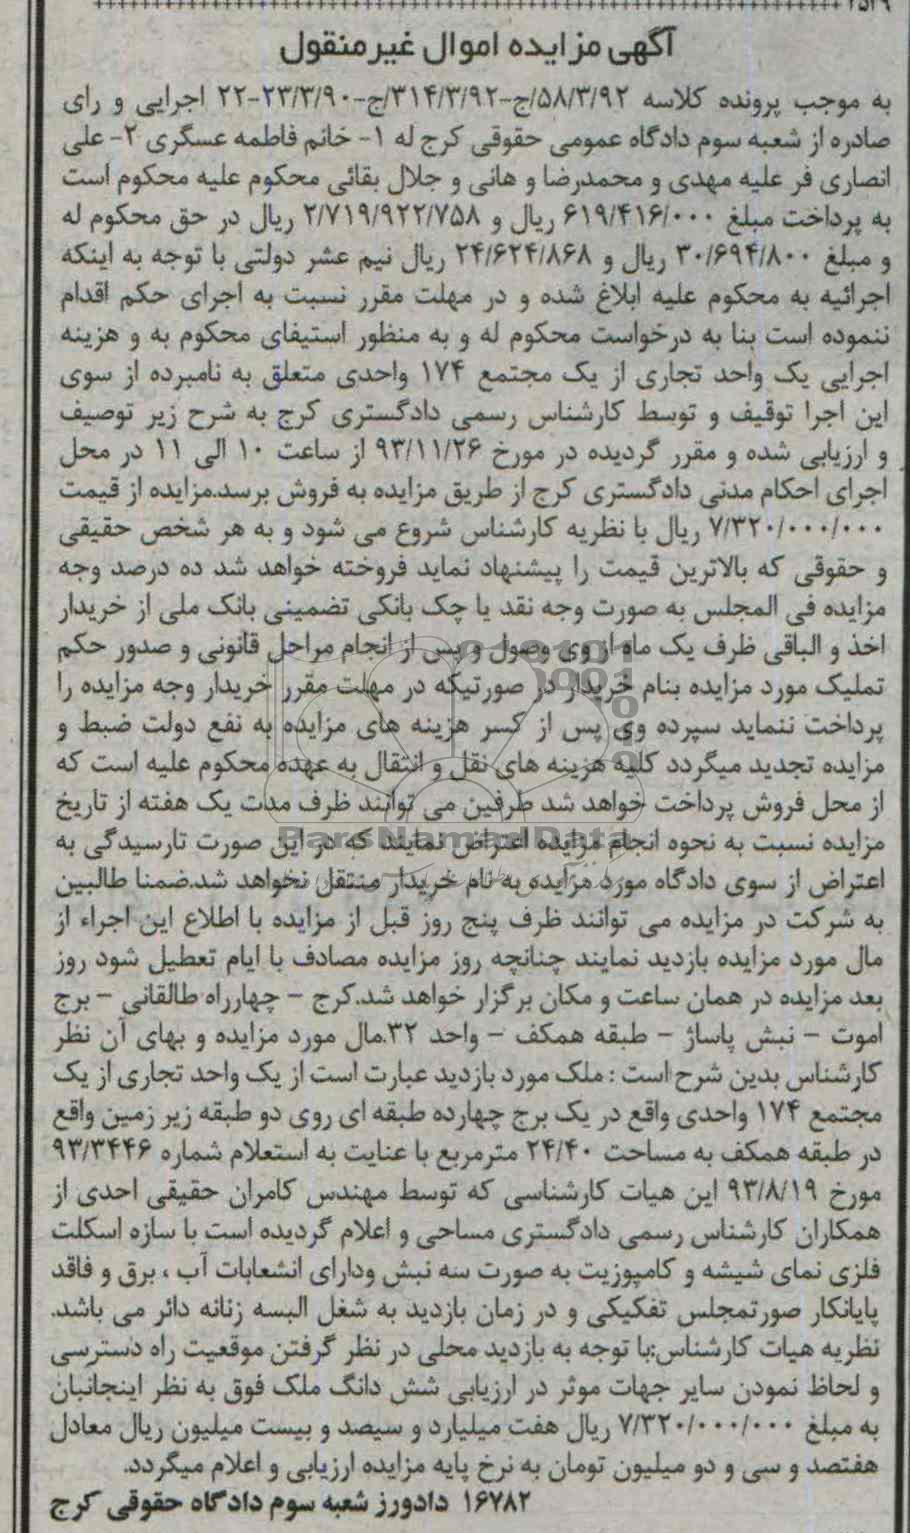 ۲۵۲۹
آگهی مزایده اموال غیرمنقول
به موجب پرونده کلاسه ۵۸/۳/۹۲/ج-۳۱۴/۳/۹۲/ج-۲۳/۳/۹۰-۲۲ اجرایی و رای
صادره از شعبه سوم دادگاه عمومی حقوقی کرج له ۱- خانم فاطمه عسگری ۲- علی
انصاری فر علیه مهدی و محمدرضا و هانی و جلال بقائی محکوم علیه محکوم است
به پرداخت مبلغ ۶۱۹/۴۱۶/۰۰۰ ریال و ۲/۷۱۹/۹۲۲/۷۵۸ ریال در حق محکوم له
و مبلغ ۳۰/۶۹۴/۸۰۰ ریال و ۲۴/۶۲۴/۸۶۸ ریال نیم عشر دولتی با توجه به اینکه
اجرائیه به محکوم علیه ابلاغ شده و در مهلت مقرر نسبت به اجرای حکم اقدام
ننموده است بنا به درخواست محکوم له و به منظور استیفای محکوم به و هزینه
اجرایی یک واحد تجاری از یک مجتمع ۱۷۴ واحدی متعلق به نامبرده از سوی
این اجرا توقیف و توسط کارشناس رسمی دادگستری کرج به شرح زیر توصیف
و ارزیابی شده و مقرر گردیده در مورخ ۹۳/۱۱/۲۶ از ساعت ۱۰ الی ۱۱ در محل
اجرای احکام مدنی دادگستری کرج از طریق مزایده به فروش برسد.مزایده از قیمت
۷/۳۲۰/۰۰۰/۰۰۰ ریال با نظریه کارشناس شروع می شود و به هر شخص حقیقی
و حقوقی که بالاترین قیمت را پیشنهاد نماید فروخته خواهد شد ده درصد وجه
مزایده فی المجلس به صورت وجه نقد یا چک بانکی تضمینی بانک ملی از خریدار
اخذ و الباقی ظرف یک ماه از وی وصول و پس از انجام مراحل قانونی و صدور حکم
تملیک مورد مزایده بنام خریدار در صورتیکه در مهلت مقرر خریدار وجه مزایده را
پرداخت ننماید سپرده وی پس از کسر هزینه های مزایده به نفع دولت ضبط و
مزایده تجدید میگردد کلیه هزینه های نقل و انتقال به عهده محکوم علیه است که
از محل فروش پرداخت خواهد شد طرفین می توانند ظرف مدت یک هفته از تاریخ
مزایده نسبت به نحوه انجام مزایده اعتراض نمایند که در این صورت تارسیدگی به
ParsNamadData
اعتراض از سوی دادگاه مورد مزایده به نام خریدار منتقل نخواهد شد.ضمنا طالبین
به شرکت در مزایده می توانند ظرف پنج روز قبل از مزایده با اطلاع این اجراء از
مال مورد مزایده بازدید نمایند چنانچه روز مزایده مصادف با ایام تعطیل شود روز
بعد مزایده در همان ساعت و مکان برگزار خواهد شد.کرج - چهارراه طالقانی - برج
اموت - نبش پاساژ - طبقه همکف - واحد ۳۲.مال مورد مزایده و بهای آن نظر
کارشناس بدین شرح است : ملک مورد بازدید عبارت است از یک واحد تجاری از یک
مجتمع ۱۷۴ واحدی واقع در یک برج چهارده طبقه ای روی دو طبقه زیر زمین واقع
در طبقه همکف به مساحت ۲۴/۴۰ مترمربع با عنایت به استعلام شماره ۹۳/۳۴۴۶
مورخ ۹۳/۸/۱۹ این هیات کارشناسی که توسط مهندس کامران حقیقی احدی از
همکاران کارشناس رسمی دادگستری مساحی و اعلام گردیده است با سازه اسکلت
فلزی نمای شیشه و کامپوزیت به صورت سه نبش ودارای انشعابات آب ، برق و فاقد
پایانکار صورتمجلس تفکیکی و در زمان بازدید به شغل البسه زنانه دائر می باشد.
نظریه هیات کارشناس:با توجه به بازدید محلی در نظر گرفتن موقعیت راه دسترسی
و لحاظ نمودن سایر جهات موثر در ارزیابی شش دانگ ملک فوق به نظر اینجانبان
به مبلغ ۷/۳۲۰/۰۰۰/۰۰۰ ریال هفت میلیارد و سیصد و بیست میلیون ریال معادل
هفتصد و سی و دو میلیون تومان به نرخ پایه مزایده ارزیابی و اعلام میگردد.
۱۶۷۸۲ دادورز شعبه سوم دادگاه حقوقی کرج